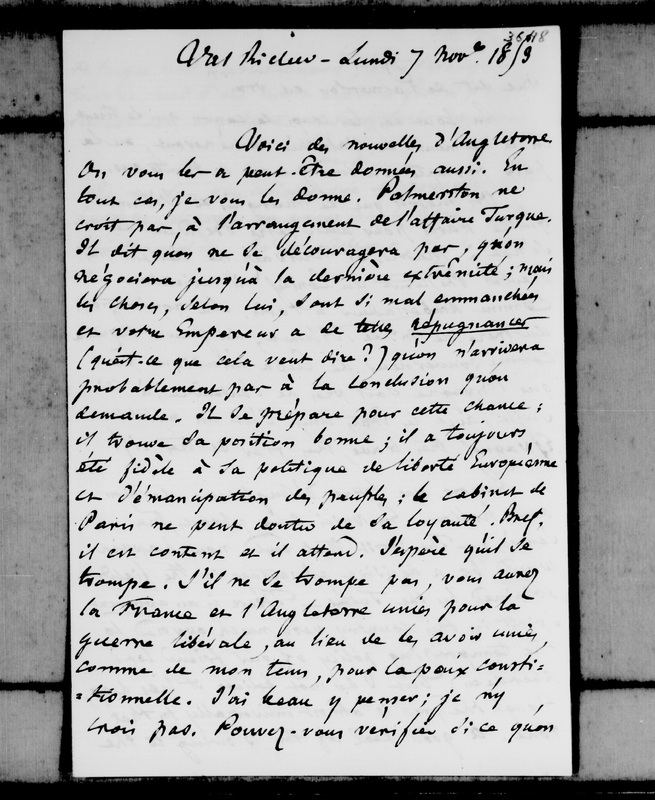 3648
Val Richer - Lundi 7 Nov.bre 1853
Voici des nouvelles d'Angleterre.
On vous les a peut-être données aussi. En
tout cas, je vous les donne. Palmerston ne
croit pas à l'arrangement de l'affaire Turque.
Il dit qu'on ne se découragera pas, qu'on
négociera jusqu'à la dernière extrémité ; mais
les choses, selon lui, sont si mal emmanchées
et votre Empereur a de telles répugnances
(qu'est-ce que cela veut dire ?) qu'on n'arrivera
probablement pas à la conclusion qu'on
demande. Il se prépare pour cette chance ;
il trouve sa position bonne ; il a toujours
été fidèle à sa politique de liberté Européenne
et d'émancipation des peuples ; le cabinet de
Paris ne peut douter de sa loyauté. Bref,
il est content et il attend. J'espère qu'il se
trompe. S'il ne se trompe pas, vous aurez
la France et l'Angleterre unies pour la
guerre libérale, au lieu de les avoir unies,
comme de mon tems, pour la paix consti-
=tionnelle. J'ai beau y penser ; je n'y
crois pas. Pouvez-vous vérifier si ce qu'on